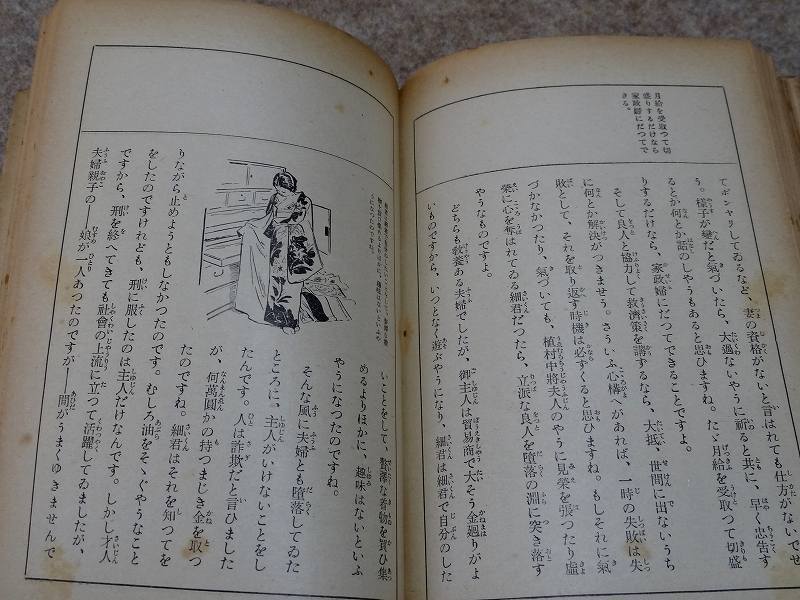 月給を受取つて切
盛りするだけなら
家政婦にだつてで
きる。
てボンヤリしてゐるなど、妻の資格がないと言はれても仕方がないでせ
う。樣子が變だと氣づいたら、大過ないやうに祈ると共に、早く忠告す
るとか何とか話のしやうもあると思ひますね。たゞ月給を受取つて切盛
りするだけなら、家政婦にだつてできることですよ。
そして良人と協力して救濟策を講ずるなら、大抵、世間に出ないうち
に何とか解決がつきませう。さういふ心構へがあれば、一時の失敗は失
敗として、それを取り返す時機は必ずくると思ひますね。もしそれに氣
づかなかつたり、氣づいても、植村中將夫人のやうに見榮を張つたり虛
榮に心を奪はれてゐる細君だつたら、立派な良人を墮落の淵に突き落す
やうなものですよ。
どちらも敎養ある夫婦でしたが、御主人は貿易商で大そう金廻りがよ
いものですから、いつとなく遊ぶやうになり、細君は細君で自分のした
いことをして、贅澤な着物を買ひ集
めるよりほかに、趣味はないといふ
やうになつたのですね。
そんな風に夫婦とも墮落してゐた
ところに、主人がいけないことをし
たんです。人は詐欺だと言ひました
が、何萬圓かの持つまじき金を取つ
たのですね。細君はそれを知つてを
りながら止めようともしなかつたのです。むしろ油をそゝぐやうなこと
をしたのですけれども、刑に服したのは主人だけなんです。しかし才人
ですから、刑を終へてきても社會の上流に立つて活躍してゐましたが、
夫婦親子の——娘が一人あつたのですが——間がうまくゆきませんで